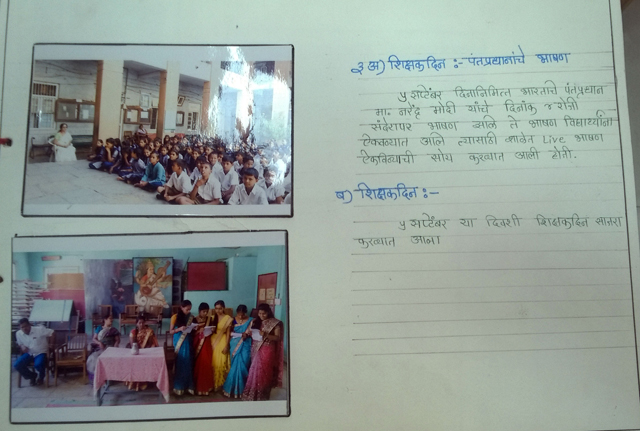 ३ अ) शिक्षकदिन :- पंतप्रधानांचे भाषण
५ सप्टेंबर दिनानिमित्त भारताचे पंतप्रधान
मा. नरेंद्र मोदी यांचे दिनांक ४ रोजी
संदेशपर भाषण झाले ते भाषण विद्यार्थ्यांना
ऐकवण्यात आले त्यासाठी शाळेत Live भाषण
ऐकविण्याची सोय करण्यात आली होती.
ब) शिक्षकदिन :-
५ सप्टेंबर या दिवशी शिक्षकदिन साजरा
करण्यात आला